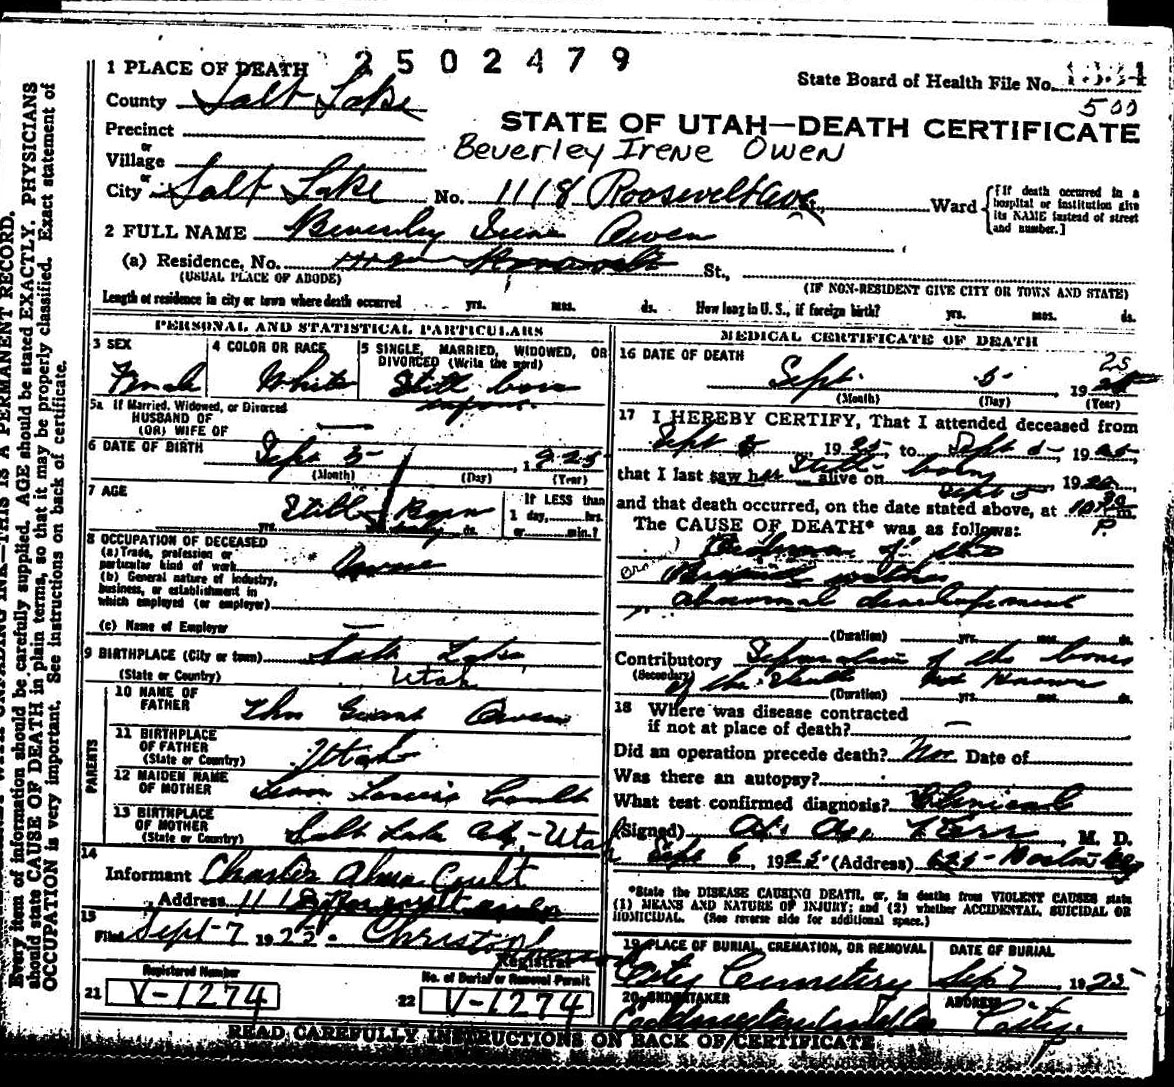 2502479
1 PLACE OF DEATH
State Board of Health File No.
500
County Salt Lake
STATE OF UTAH—DEATH CERTIFICATE
Precinct
Beverley Irene Owen
or
Village
or
City Salt Lake No. 1118 Roosevelt Ave. Ward
[If death occurred in a hospital or institution give its NAME instead of street and number.]
2 FULL NAME Beverley Irene Owen
(a) Residence, No. Roosevelt St.,
(USUAL PLACE OF ABODE)
(IF NON-RESIDENT GIVE CITY OR TOWN AND STATE)
Length of residence in city or town where death occurred yrs. mos. ds. How long in U. S., if foreign birth? yrs. mos. ds.
PERSONAL AND STATISTICAL PARTICULARS
3 SEX
Female
4 COLOR OR RACE
White
5 SINGLE, MARRIED, WIDOWED, OR DIVORCED (Write the word)
Still born
5a If Married, Widowed, or Divorced
HUSBAND OF
(OR) WIFE OF
6 DATE OF BIRTH Sept 5 1925
(Month) (Day) (Year)
7 AGE Still Born
yrs. ds.
If LESS than
1 day, hrs.
or min.?
8 OCCUPATION OF DECEASED
(a) Trade, profession or
particular kind of work
(b) General nature of industry,
business, or establishment in
which employed (or employer)
(c) Name of Employer
9 BIRTHPLACE (City or town) Salt Lake
(State or Country) Utah
PARENTS
10 NAME OF
FATHER Thos Grant Owen
11 BIRTHPLACE
OF FATHER
(State or Country) Utah
12 MAIDEN NAME
OF MOTHER Coult
13 BIRTHPLACE
OF MOTHER
(State or Country) Salt Lake City - Utah
14
Informant Charles Alma Coult
Address 1118 Roosevelt
15
Filed Sept 7 1925
Registrar
Registered Number
21 V-1274
No. of Burial or Removal Permit
22 V-1274
MEDICAL CERTIFICATE OF DEATH
16 DATE OF DEATH
Sept. 5 1925
(Month) (Day) (Year)
17 I HEREBY CERTIFY, That I attended deceased from
Sept 5 1925, to Sept 5, 1925,
that I last saw her alive on Still born 19
Sept 5
and that death occurred, on the date stated above, at m.
P.
The CAUSE OF DEATH* was as follows:
of the
abnormal development
(Duration) yrs. mos. ds.
Contributory Separation of the bones
(Secondary) of the Skull Not Known
(Duration) yrs. mos. ds.
18 Where was disease contracted
if not at place of death?
Did an operation precede death? Date of
Was there an autopsy?
What test confirmed diagnosis? Clinical
(Signed) M. D.
Sept 6 1925 (Address)
*State the DISEASE CAUSING DEATH, or, in deaths from VIOLENT CAUSES state
(1) MEANS AND NATURE OF INJURY; and (2) whether ACCIDENTAL, SUICIDAL OR
HOMICIDAL. (See reverse side for additional space.)
19 PLACE OF BURIAL, CREMATION, OR REMOVAL
City Cemetery
DATE OF BURIAL
Sep 7 1925
20 UNDERTAKER
ADDRESS
City.
READ CAREFULLY INSTRUCTIONS ON BACK OF CERTIFICATE
THIS IS A PERMANENT RECORD.
Every item of information should be carefully supplied. AGE should be stated EXACTLY. PHYSICIANS
should state CAUSE OF DEATH in plain terms, so that it may be properly classified. Exact statement of
OCCUPATION is very important. See instructions on back of certificate.